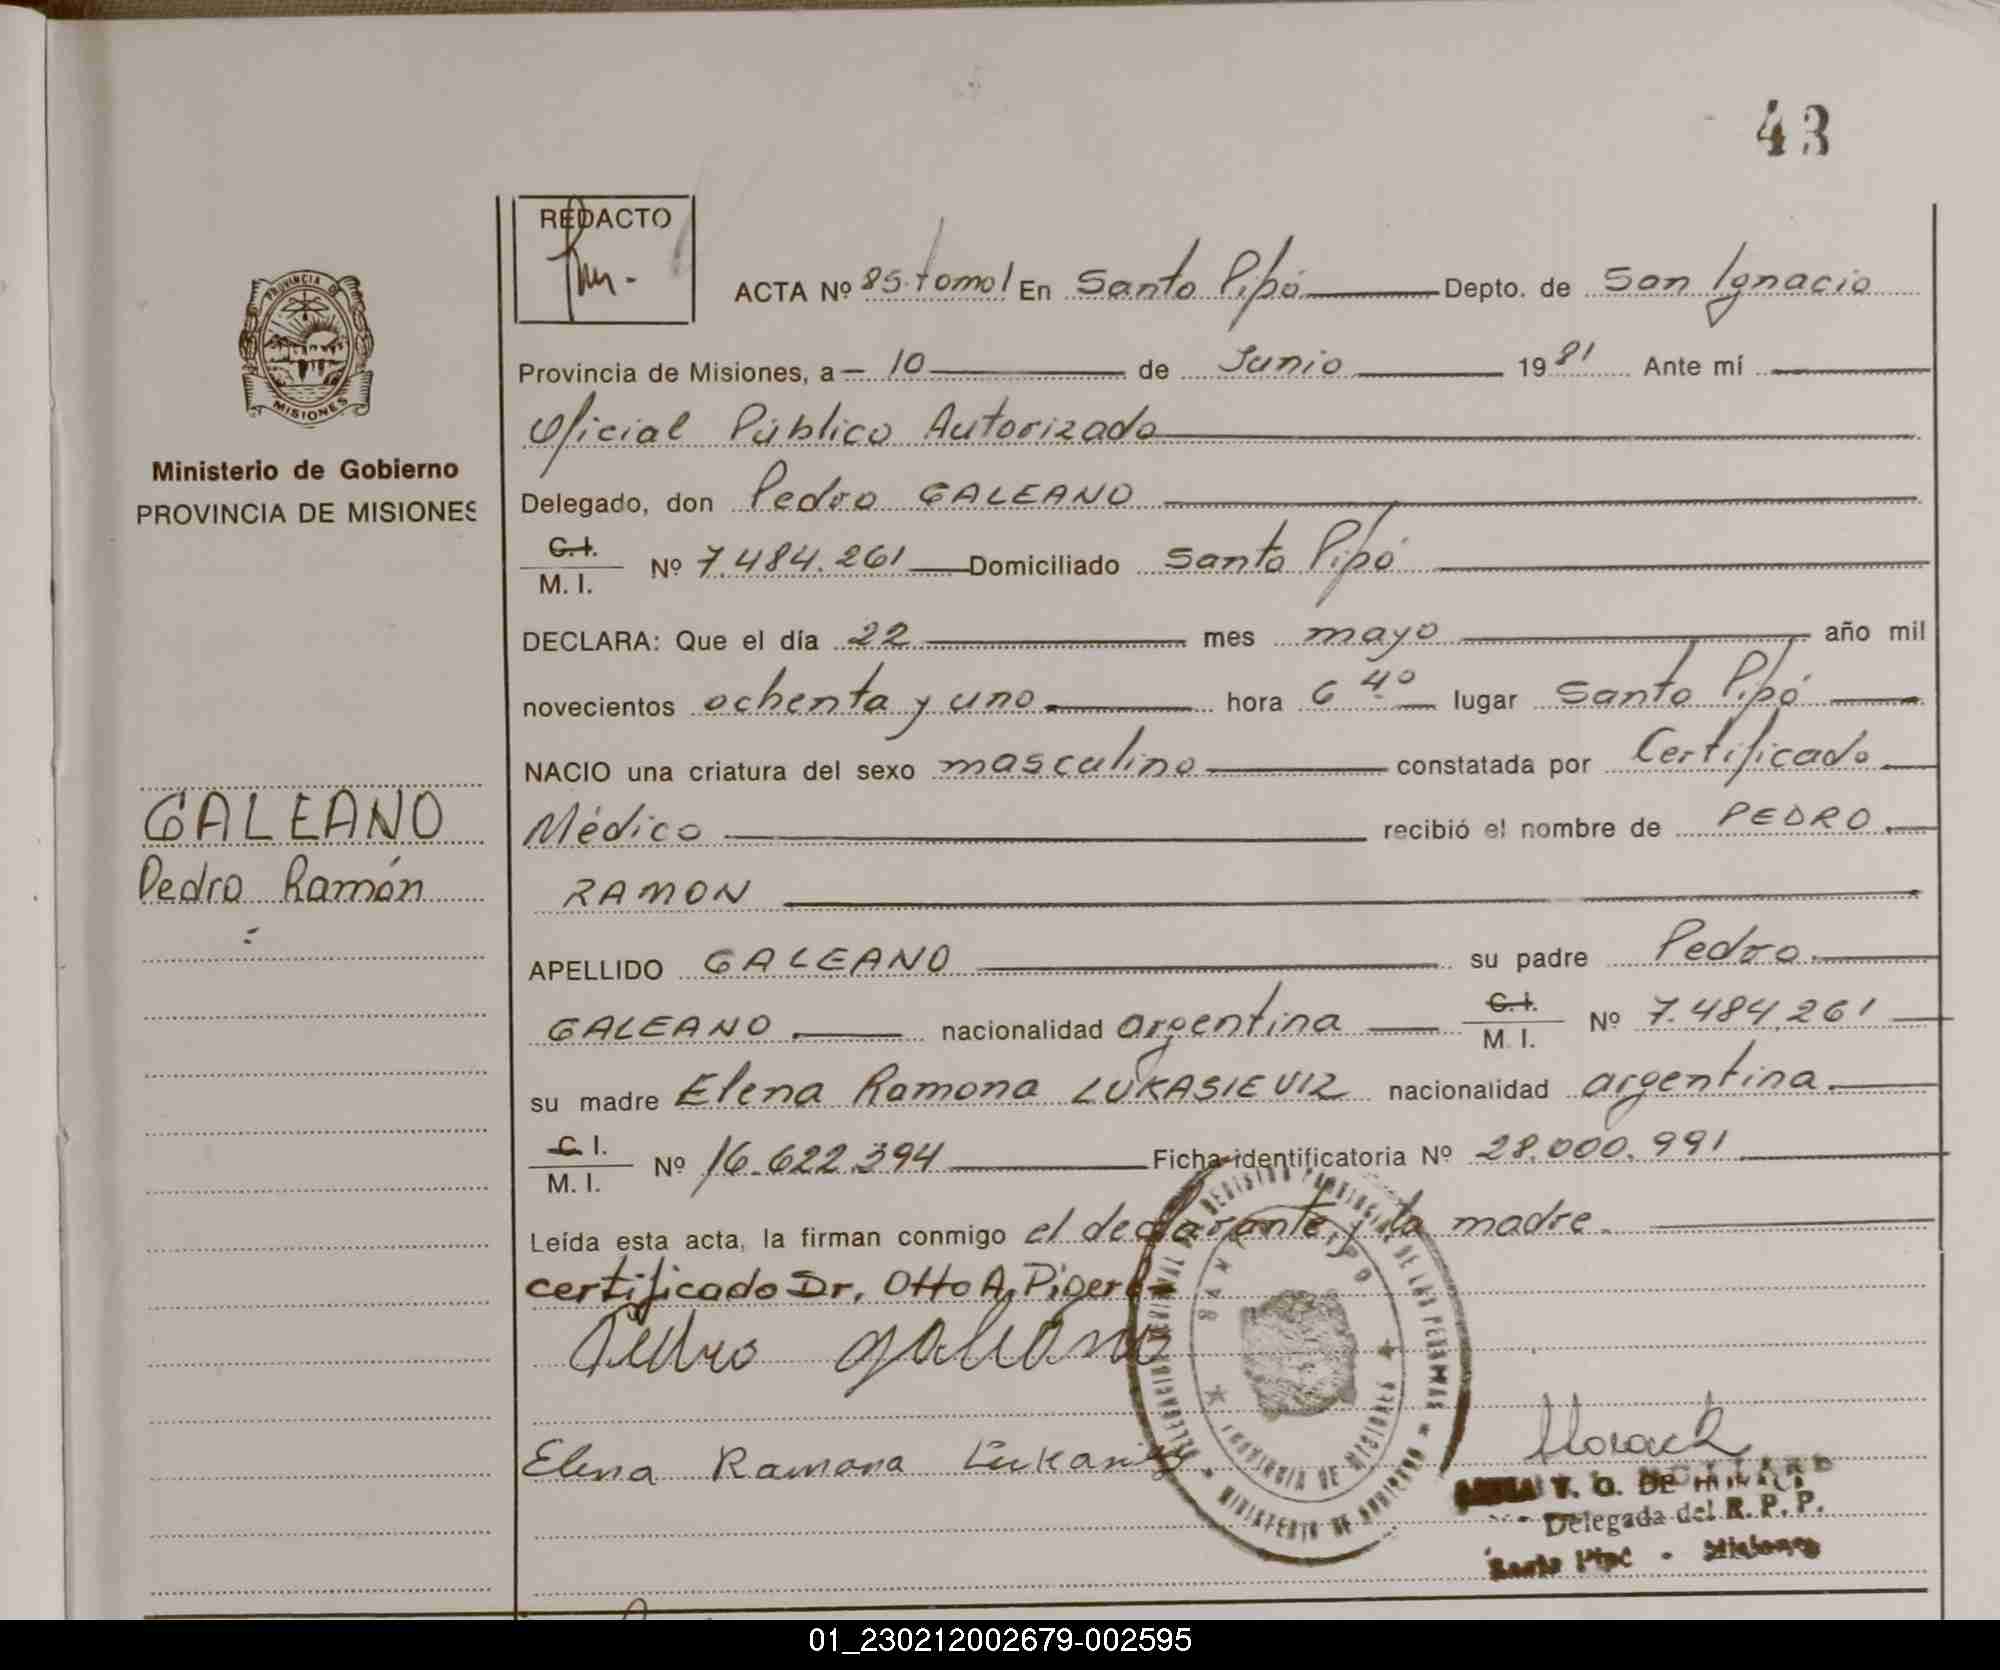 43
REDACTO
ACTA Nº 85 tomo I En Santo Pipó Depto. de San Ignacio
PROVINCIA DE
MISIONES
Provincia de Misiones, a 10 de Junio 1981 Ante mí
Oficial Público Autorizado
Ministerio de Gobierno
PROVINCIA DE MISIONES
Delegado, don Pedro GALEANO
C.I.
M. I. Nº 7.484.261 Domiciliado Santo Pipó
DECLARA: Que el día 22 mes mayo año mil
novecientos ochenta y uno hora 6 40 lugar Santo Pipó
NACIO una criatura del sexo masculino constatada por Certificado
GALEANO
Pedro Ramón
Médico recibió el nombre de PEDRO
RAMON
APELLIDO GALEANO su padre Pedro
GALEANO nacionalidad argentina C.I. M. I. Nº 7.484.261
su madre Elena Ramona LUKASIEVIZ nacionalidad argentina
C I.
M. I. Nº 16.622.394 Ficha identificatoria Nº 28.000.991
Leída esta acta, la firman conmigo el declarante y la madre.
certificado Dr. Otto A.
Pedro galeano
Elena Ramona
PROVINCIA DE MISIONES
MINISTERIO DE GOBIERNO
V. O. DE
Delegada del R. P. P.
Santo Pipó - Misiones
01_230212002679-002595